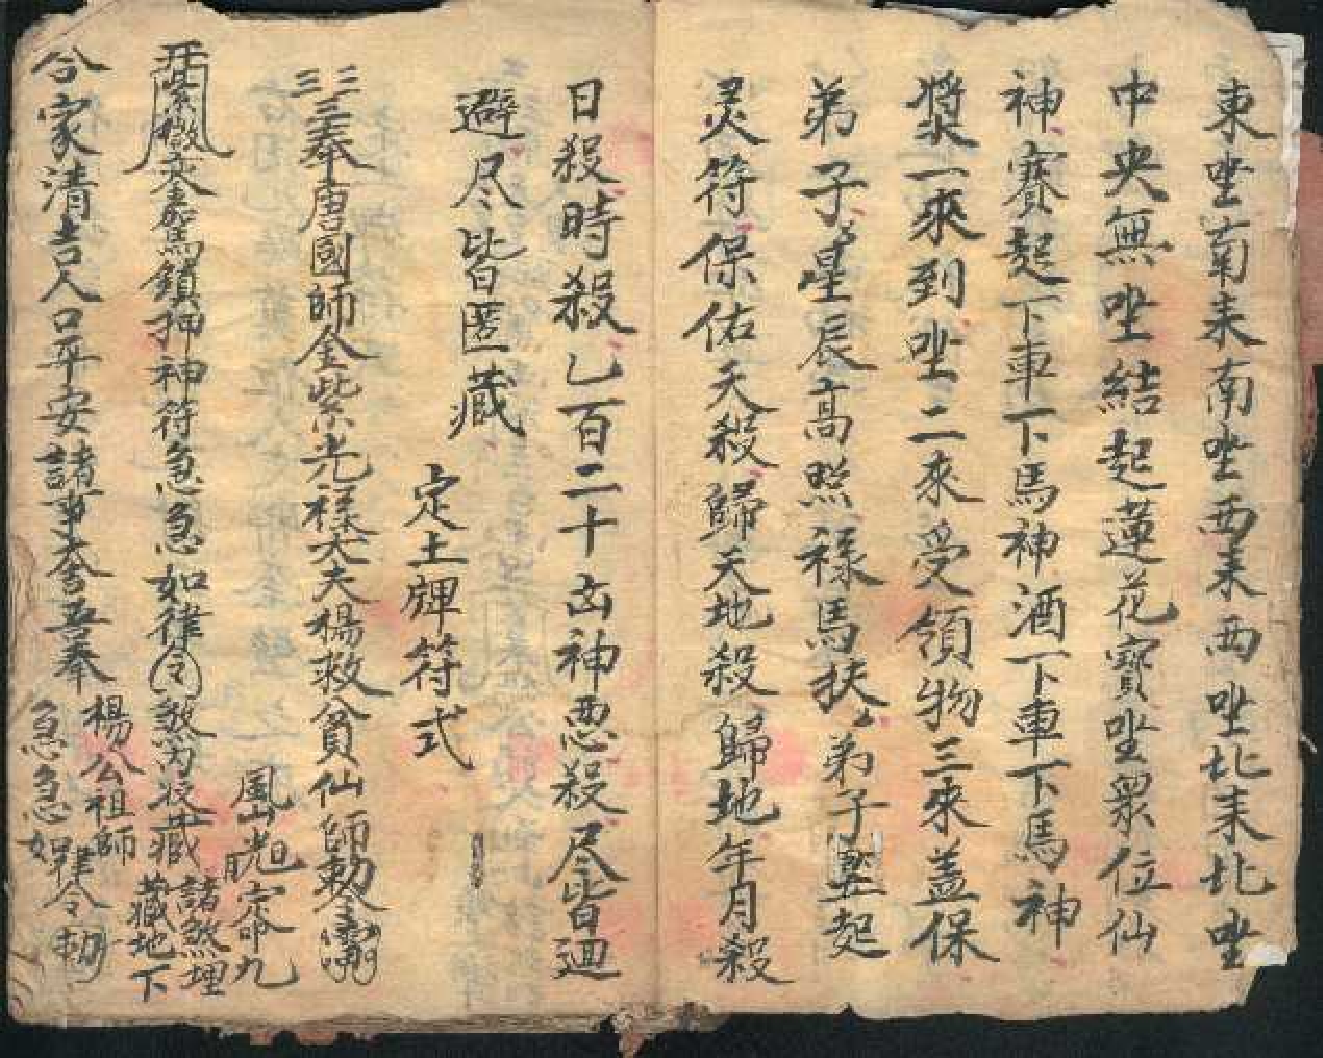 東坐東來南坐西來西坐北來北坐
中央無坐結起蓮花寶坐眾位仙
神賽起下車下馬神酒下車下馬神
漿一來到坐二來受領物三來蓋保
弟子星辰高照祿馬扶弟子竪起
灵符保佑天殺歸天地殺歸地年月殺
日殺時殺乙百二十凶神恶殺尽皆迴
避尽皆匿藏
定土牌符式
三三三奉唐國師金紫光祿大夫楊救貧仙師勅令
鎮押神符急急如律令煞内没藏
諸煞埋
藏地下
合家清吉人口平安諸事大吉吾奉
楊公祖師
急急如律令勅